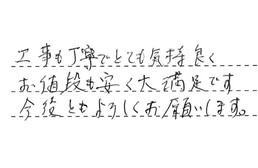 工事も丁寧でとても気持良く
お値段も安く大満足です
今後ともよろしくお願いします。